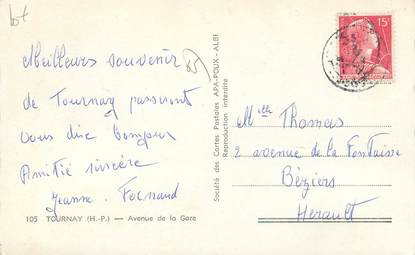 Meilleurs souvenir
de Tournay passeront
vous dire bonjour
Amitié sincère
Jeanne. Fernand
105 TOURNAY (H.-P.) — Avenue de la Gare
Société des Cartes Postales APA-POUX - ALBI
Reproduction interdite
15F
Melle Thomas
2 avenue de la Fontaine
Béziers
Herault